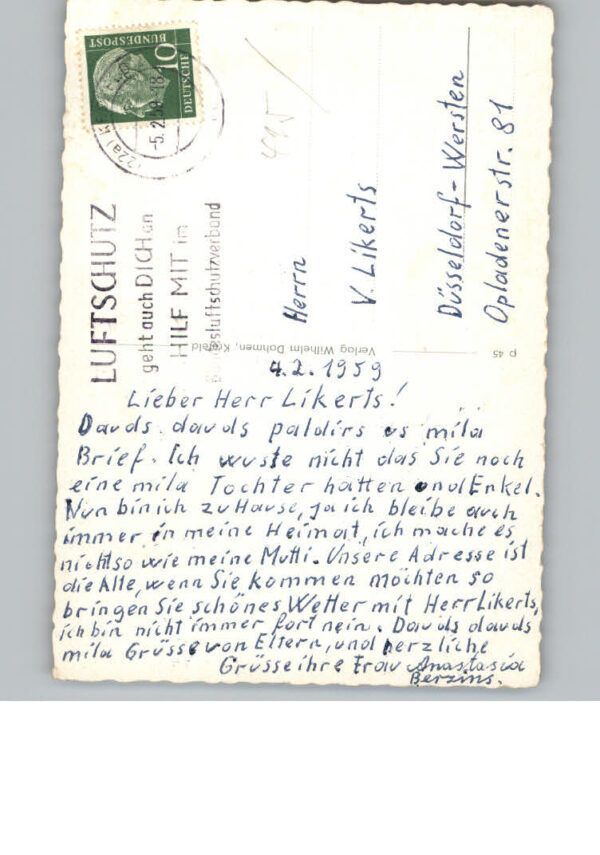 DEUTSCHE
BUNDESPOST
10
-5.2.59-18
(22a) KREFELD
LUFTSCHUTZ
geht auch DICH an
HILF MIT im
Bundesluftschutzverband
Herrn
V. Likerts
Düsseldorf-Wersten
Opladenerstr. 81
Verlag Wilhelm Dohmen, Krefeld
p 45
4.2.1959
Lieber Herr Likerts!
Dauds dauds paldirs os mila
Brief. Ich wuste nicht das Sie noch
eine mila Tochter hatten und Enkel.
Nun bin ich zu Hause, ja ich bleibe auch
immer in meine Heimat, ich mache es
nicht so wie meine Mutti. Unsere Adresse ist
die Alte, wenn Sie kommen möchten so
bringen Sie schönes Wetter mit Herr Likerts,
ich bin nicht immer fort nein. Dauds dauds
mila Grüsse von Eltern, und herzliche
Grüsse ihre Frau Anastasia
Berzins.